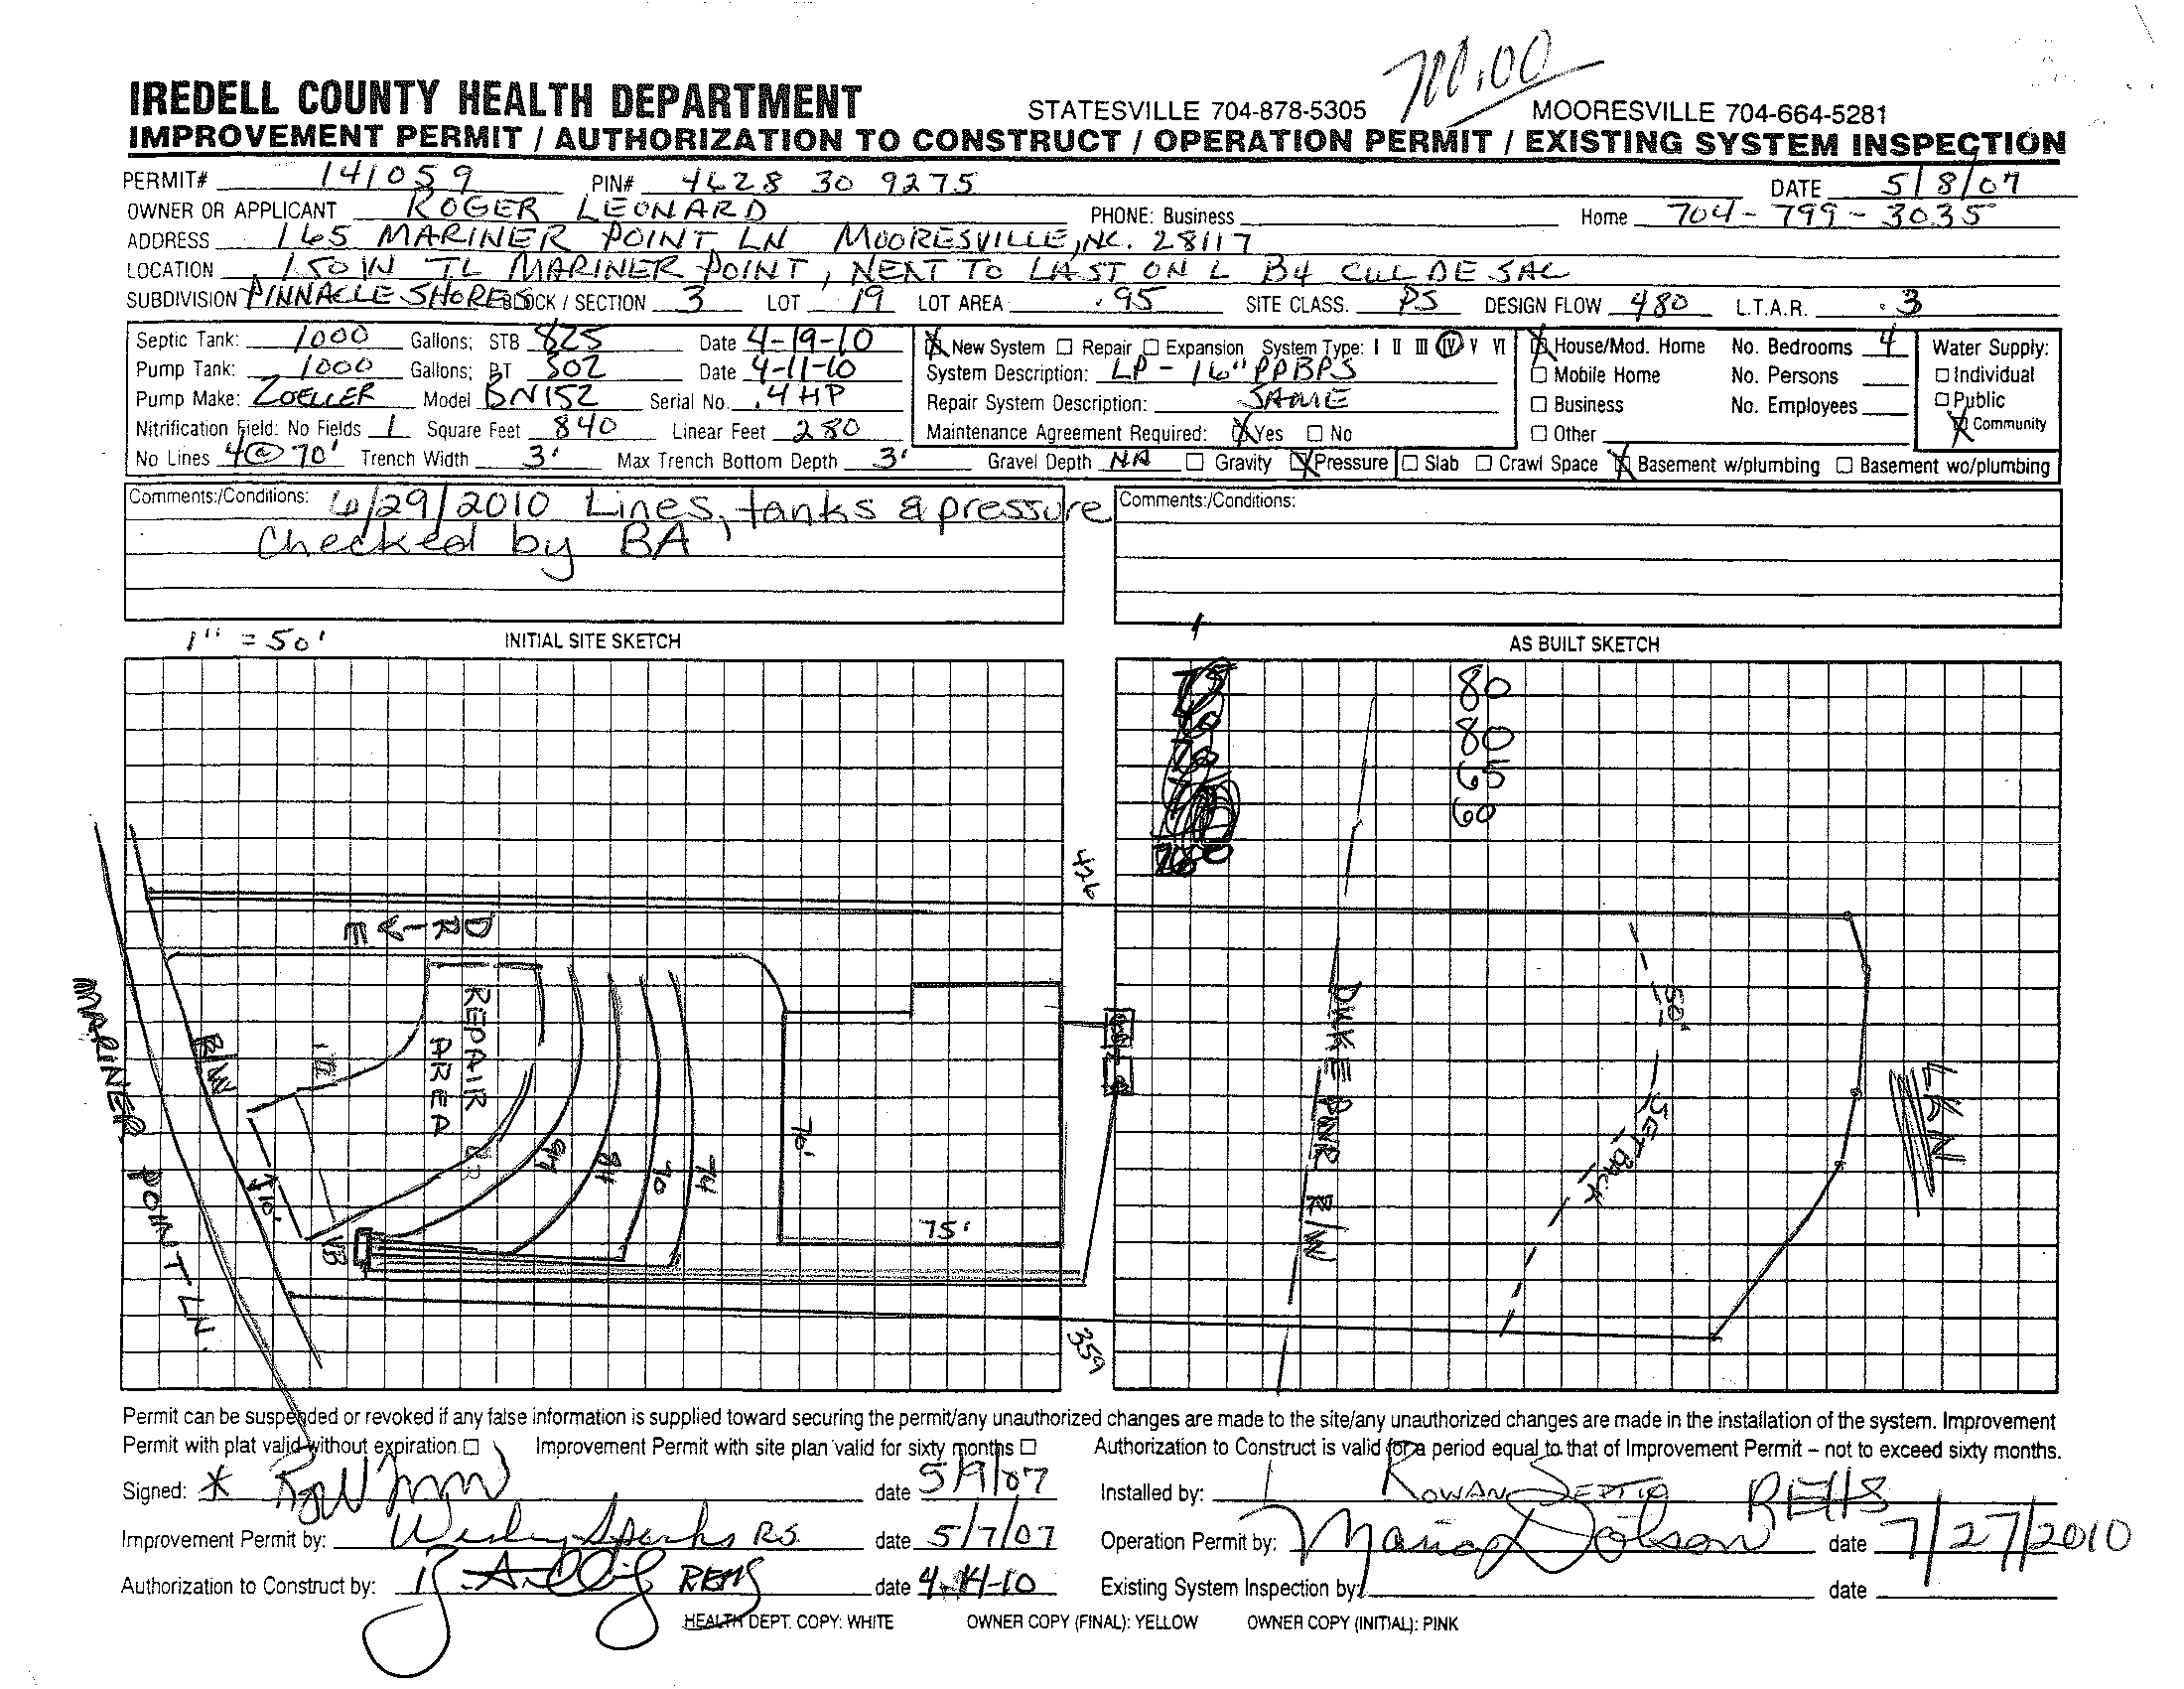 700.00
IREDELL COUNTY HEALTH DEPARTMENT STATESVILLE 704-878-5305 MOORESVILLE 704-664-5281
IMPROVEMENT PERMIT / AUTHORIZATION TO CONSTRUCT / OPERATION PERMIT / EXISTING SYSTEM INSPECTION
PERMIT# 141059 PIN# 4628 30 9275 DATE 5/8/07
OWNER OR APPLICANT ROGER LEONARD PHONE: Business Home 704-799-3035
ADDRESS 165 MARINER POINT LN MOORESVILLE, NC. 28117
LOCATION 150 W TL MARINER POINT, NEXT TO LAST ON L B4 CUL DE SAC
SUBDIVISION PINNACLE SHORES BLOCK / SECTION 3 LOT 19 LOT AREA .95 SITE CLASS. PS DESIGN FLOW 480 L.T.A.R. .3
Septic Tank: 1000 Gallons; STB 825 Date 4-19-10 New System Repair Expansion System Type: I II III IV V VI House/Mod. Home No. Bedrooms 4 Water Supply:
Pump Tank: 1000 Gallons; PT 502 Date 4-11-10 System Description: LP - 16" PPBPS Mobile Home No. Persons Individual
Pump Make: ZOELLER Model BN152 Serial No. .4 HP Repair System Description: SAME Business No. Employees Public
Nitrification Field: No Fields 1 Square Feet 840 Linear Feet 280 Maintenance Agreement Required: Yes No Other Community
No Lines 4@70' Trench Width 3' Max Trench Bottom Depth 3' Gravel Depth NA Gravity Pressure Slab Crawl Space Basement w/plumbing Basement wo/plumbing
Comments:/Conditions: 6/29/2010 Lines, tanks & pressure Comments:/Conditions:
Checked by BA
1" = 50' INITIAL SITE SKETCH AS BUILT SKETCH
80
80
65
60
426
DRIVE
REPAIR AREA
R/W
MARINER POINT LN.
10'
VB
84
90
74
70'
75'
359
DUKE PWR R/W
50'
SETBACK
LKN
Permit can be suspended or revoked if any false information is supplied toward securing the permit/any unauthorized changes are made to the site/any unauthorized changes are made in the installation of the system. Improvement
Permit with plat valid without expiration. Improvement Permit with site plan valid for sixty months Authorization to Construct is valid for a period equal to that of Improvement Permit – not to exceed sixty months.
Signed: * date 5/9/07 Installed by: ROWAN SEPTIC
Improvement Permit by: Wesley Sparks R.S. date 5/7/07 Operation Permit by: Maria Dotson REHS date 7/27/2010
Authorization to Construct by: REHS date 4-14-10 Existing System Inspection by: date
HEALTH DEPT. COPY: WHITE OWNER COPY (FINAL): YELLOW OWNER COPY (INITIAL): PINK